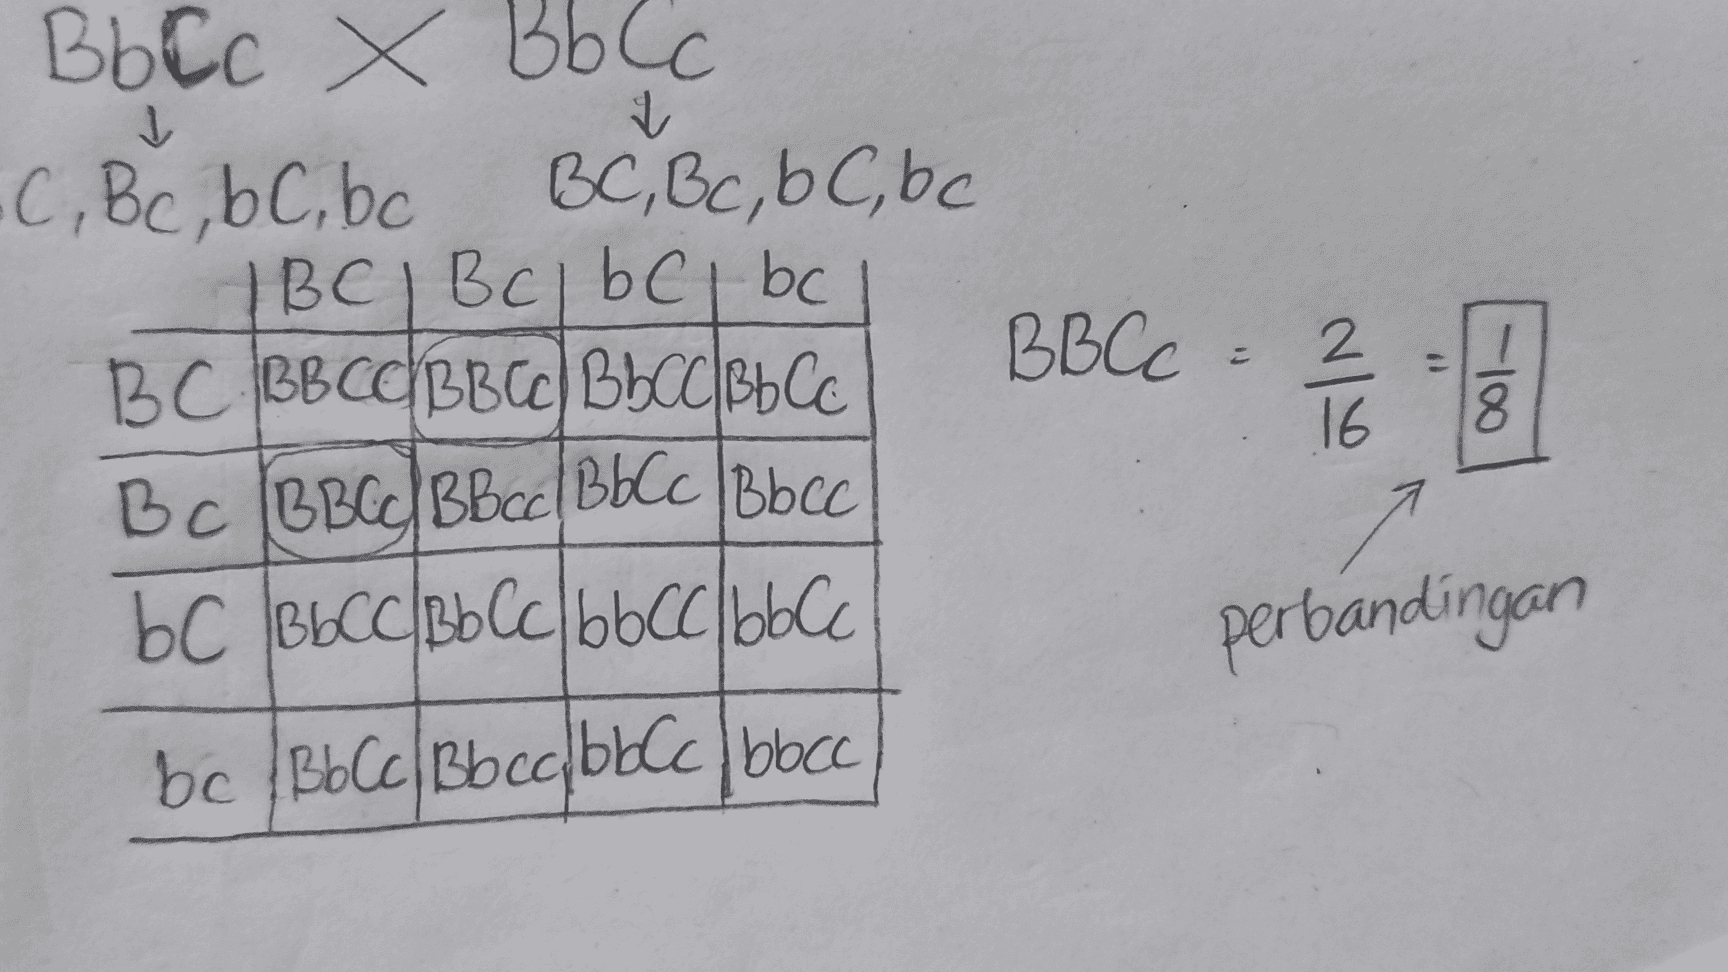 BbCc × BbCc
↓ ↓
C, Bc, bC, bc BC, Bc, bC, bc
BC Bc bC bc
BC BBCC BBCc BbCC BbCc
Bc BBCc BBcc BbCc Bbcc
bC BbCC BbCc bbCC bbCc
bc BbCc Bbcc bbCc bbcc
BBCc = 2/16 = 1/8
perbandingan